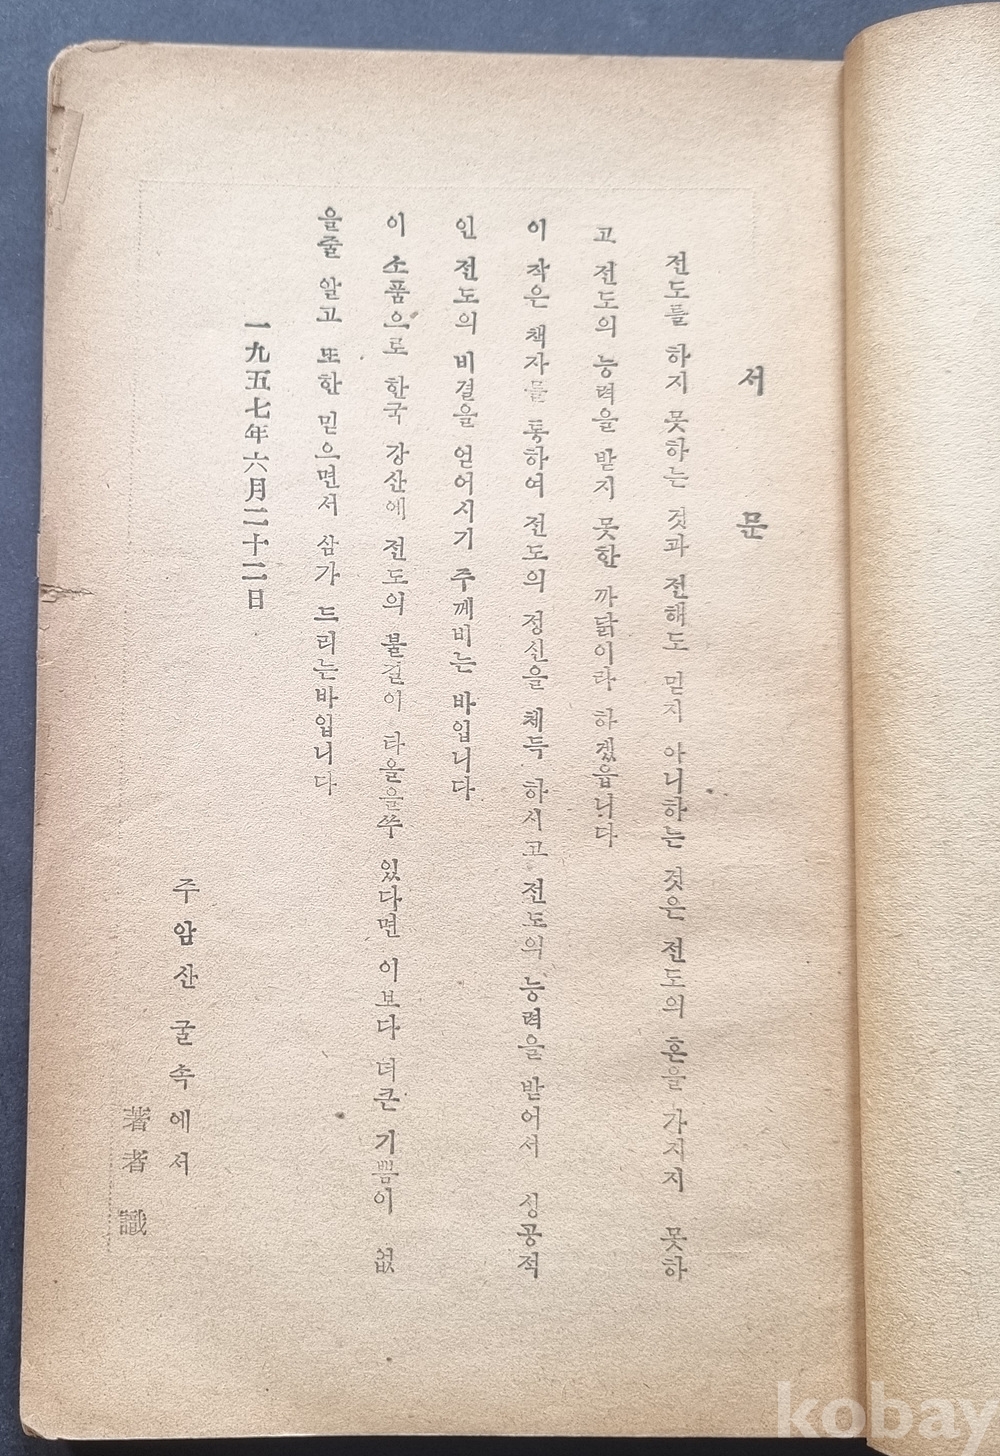 서 문
전도를 하지 못하는 것과 전해도 믿지 아니하는 것은 전도의 혼을 가지지 못하
고 전도의 능력을 받지 못한 까닭이라 하겠읍니다
이 작은 책자를 통하여 전도의 정신을 체득 하시고 전도의 능력을 받어서 성공적
인 전도의 비결을 얻어시기 주께비는 바입니다
이 소품으로 한국 강산에 전도의 불길이 다을을쑤 있다면 이보다 더큰 기쁨이 없
을줄 알고 또한 믿으면서 삼가 드리는바입니다
一九五七年六月二十二日
주암산 굴속에서
著者 識
kobay